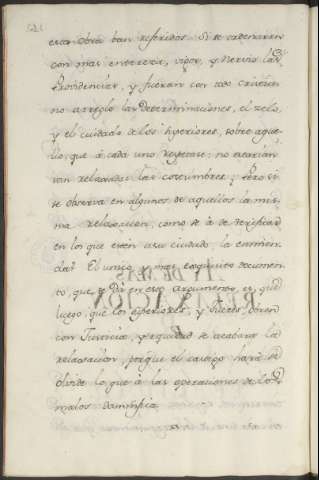 esta Obra ban referidos. Si se exercieran
con mas entereza, vigor, y nervio las
Providencias, y fueran con todo
no arreglo las Determinaciones, el zelo,
y el cuidado de los Superiores, sobre aque-
llo, que à cada uno respecta: no estarian
tan relaxadas las costumbres; Pero si
se observa en algunos de aquellos la mis-
ma relaxacion, como se à de verificar
en los que estén à su ciudado, la enmien-
da? El unico, y mas esquisito documen-
to, que se dà en este Argumento, es, que
luego que los Superiores, y Jueces, obren
con Justicia, y equidad se acabará la
relaxacion, porque el castigo hará se
olvide lo que à las operaciones de los
malos